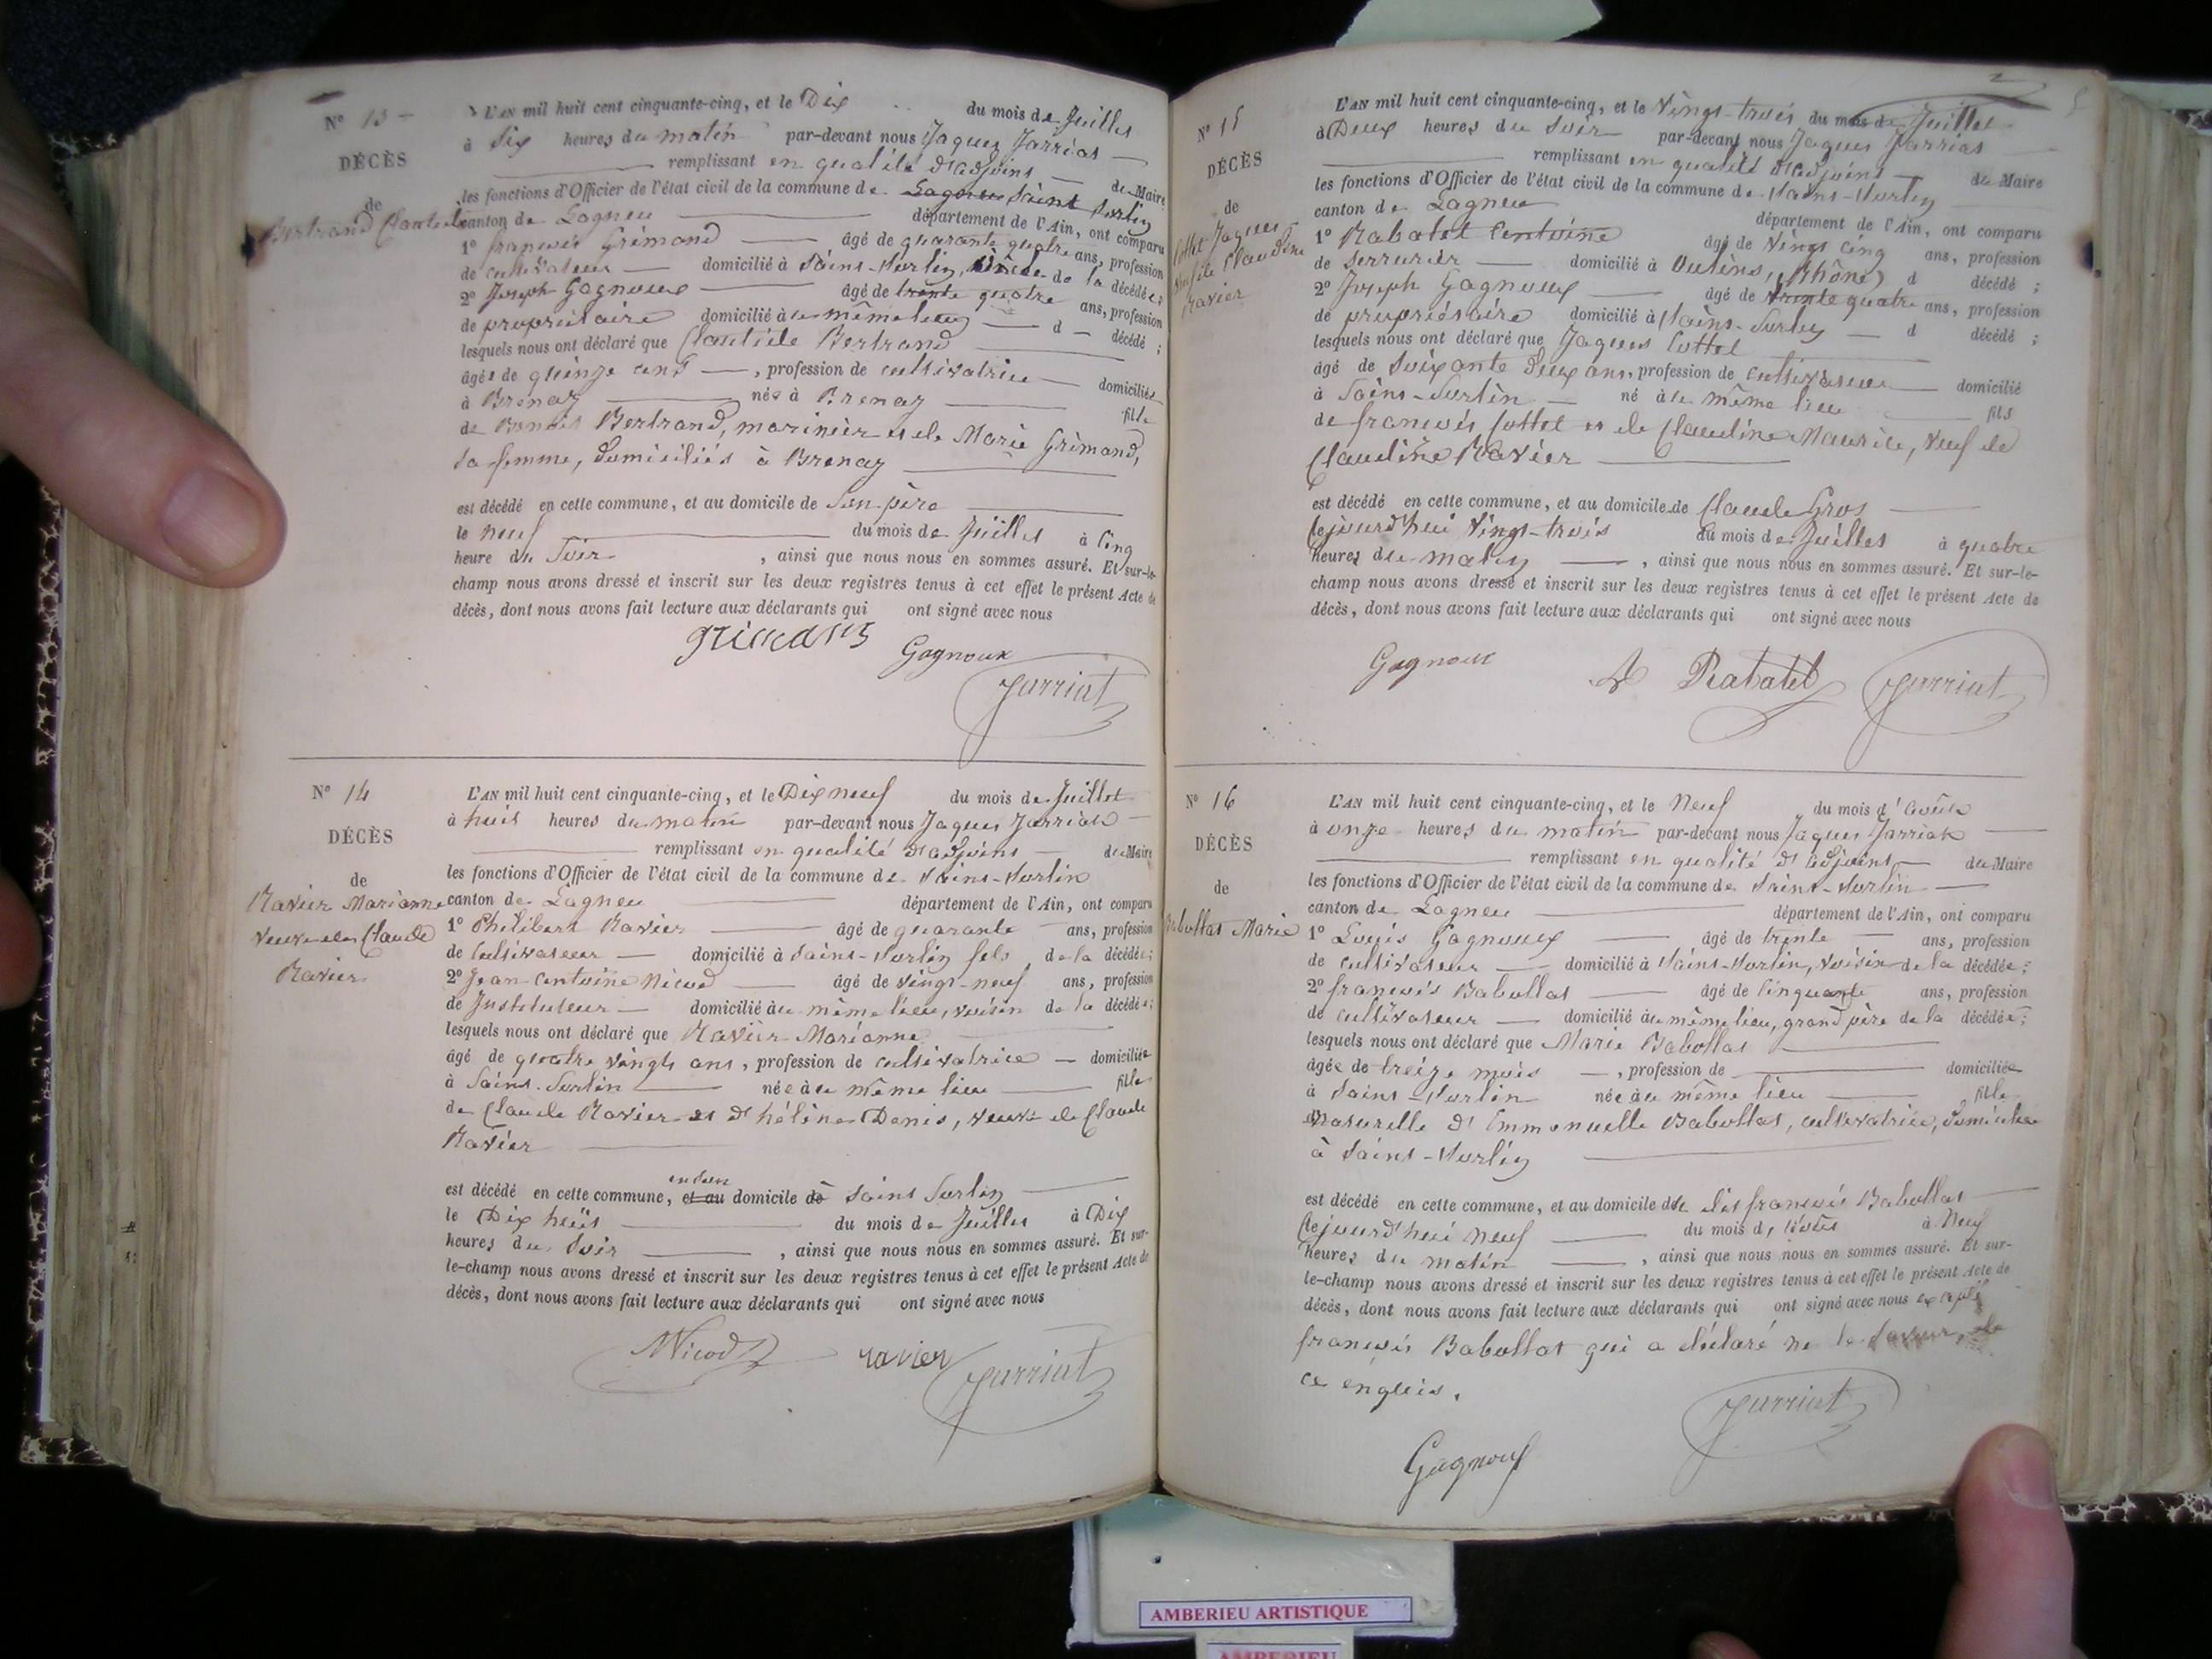 N° 13
DÉCÈS
de
Bertrand Clautilde
L'AN mil huit cent cinquante-cinq, et le Dix du mois de Juillet
à Six heures du matin par-devant nous Jaques Jarriat
remplissant en qualité d'adjoint du Maire
les fonctions d'Officier de l'état civil de la commune de Lagneu Saint Sorlin
canton de Lagneu département de l'Ain, ont comparu
1° françois Grimand âgé de quarante quatre ans, profession
de cultivateur domicilié à Saint-Sorlin, oncle de la décédée;
2° Joseph Gagnoux âgé de trente quatre ans, profession
de propriétaire domicilié au même lieu d décédé;
lesquels nous ont déclaré que Clautilde Bertrand
âgée de quinze ans, profession de cultivatrice domiciliée
à Brenaz née à Brenaz fille
de Benoit Bertrand, marinier et de Marie Grimand,
sa femme, domiciliés à Brenaz
est décédé en cette commune, et au domicile de Son père
le neuf du mois de Juillet à Cinq
heure du Soir, ainsi que nous nous en sommes assuré. Et sur-le-
champ nous avons dressé et inscrit sur les deux registres tenus à cet effet le présent Acte de
décès, dont nous avons fait lecture aux déclarants qui ont signé avec nous
Gagnoux
Jarriat
N° 14
DÉCÈS
de
Ravier Marianne
veuve de Claude
Ravier
L'AN mil huit cent cinquante-cinq, et le Dix neuf du mois de Juillet
à huit heures du matin par-devant nous Jaques Jarriat
remplissant en qualité d'adjoint du Maire
les fonctions d'Officier de l'état civil de la commune de Saint-Sorlin
canton de Lagneu département de l'Ain, ont comparu
1° Philibert Ravier âgé de quarante ans, profession
de Cultivateur domicilié à Saint-Sorlin fils de la décédée;
2° Jean Antoine Nicod âgé de vingt-neuf ans, profession
de Instituteur domicilié au même lieu, voisin de la décédée;
lesquels nous ont déclaré que Ravier Marianne
âgé de quatre vingts ans, profession de cultivatrice domiciliée
à Saint-Sorlin née au même lieu fille
de Claude Ravier et d'hélène Denis, veuve de Claude
Ravier
en son
est décédé en cette commune, et au domicile de Saint Sorlin
le Dix huit du mois de Juillet à Dix
heures du Soir, ainsi que nous nous en sommes assuré. Et sur-
le-champ nous avons dressé et inscrit sur les deux registres tenus à cet effet le présent Acte de
décès, dont nous avons fait lecture aux déclarants qui ont signé avec nous
Nicod ravier Jarriat
N° 15
DÉCÈS
de
Cottet Jaques
veuf de Claudine
Ravier
L'AN mil huit cent cinquante-cinq, et le Vingt-trois du mois de Juillet
à Deux heures du Soir par-devant nous Jaques Jarriat
remplissant en qualité d'adjoint du Maire
les fonctions d'Officier de l'état civil de la commune de Saint-Sorlin
canton de Lagneu département de l'Ain, ont comparu
1° Rabatet Antoine âgé de Vingt Cinq ans, profession
de Serrurier domicilié à Oulins, (Rhône) d décédé;
2° Joseph Gagnoux âgé de trente quatre ans, profession
de propriétaire domicilié à Saint-Sorlin d décédé;
lesquels nous ont déclaré que Jaques Cottet
âgé de Soixante Deux ans, profession de Cultivateur domicilié
à Saint-Sorlin né au même lieu fils
de françois Cottet et de Claudine Maurice, veuf de
Claudine Ravier
est décédé en cette commune, et au domicile de Claude Gros
Cejourd'hui Vingt-trois du mois de Juillet à quatre
heures du matin, ainsi que nous nous en sommes assuré. Et sur-le-
champ nous avons dressé et inscrit sur les deux registres tenus à cet effet le présent Acte de
décès, dont nous avons fait lecture aux déclarants qui ont signé avec nous
Gagnoux A Rabatet Jarriat
N° 16
DÉCÈS
de
Babollat Marie
L'AN mil huit cent cinquante-cinq, et le Neuf du mois d'Août
à onze heures du matin par-devant nous Jaques Jarriat
remplissant en qualité d'adjoint du Maire
les fonctions d'Officier de l'état civil de la commune de Saint-Sorlin
canton de Lagneu département de l'Ain, ont comparu
1° Louis Gagnoux âgé de trente ans, profession
de cultivateur domicilié à Saint-Sorlin, voisin de la décédée;
2° françois Babollat âgé de Cinquante ans, profession
de cultivateur domicilié au même lieu, grand père de la décédée;
lesquels nous ont déclaré que Marie Babollat
âgée de treize mois, profession de domiciliée
à Saint-Sorlin née au même lieu fille
Naturelle d'Emmanuelle Babollat, cultivatrice, domiciliée
à Saint-Sorlin
est décédé en cette commune, et au domicile de dit françois Babollat
Cejourd'hui Neuf du mois d'Août à Neuf
heures du matin, ainsi que nous nous en sommes assuré. Et sur-
le-champ nous avons dressé et inscrit sur les deux registres tenus à cet effet le présent Acte de
décès, dont nous avons fait lecture aux déclarants qui ont signé avec nous excepté
françois Babollat qui a déclaré ne le savoir, de
ce enquis.
Jarriat
Gagnoux
AMBERIEU ARTISTIQUE
AMBERIEU